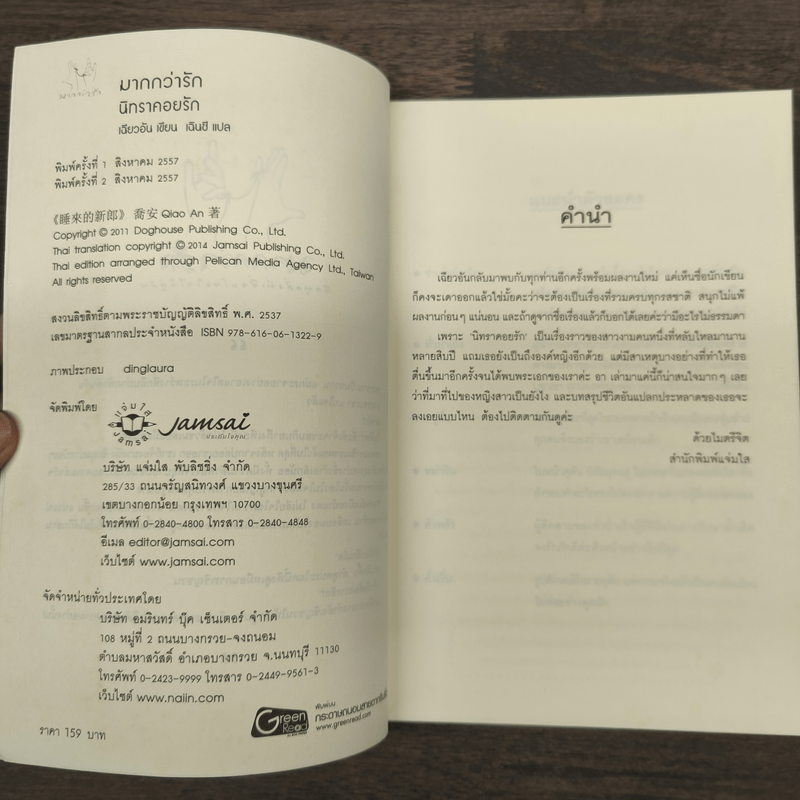 มากกว่ารัก
นิทราคอยรัก
เฉียวอัน เขียน เฉินซี แปล
พิมพ์ครั้งที่ 1 สิงหาคม 2557
พิมพ์ครั้งที่ 2 สิงหาคม 2557
《睡來的新郎》 喬安 Qiao An 著
Copyright © 2011 Doghouse Publishing Co., Ltd.
Thai translation copyright © 2014 Jamsai Publishing Co., Ltd.
Thai edition arranged through Pelican Media Agency Ltd., Taiwan
All rights reserved
สงวนลิขสิทธิ์ตามพระราชบัญญัติลิขสิทธิ์ พ.ศ. 2537
เลขมาตรฐานสากลประจำหนังสือ ISBN 978-616-06-1322-9
ภาพประกอบ dinglaura
จัดพิมพ์โดย
แจ่มใส
Jamsai
Jamsai
บริษัท แจ่มใส พับลิชชิ่ง จำกัด
285/33 ถนนจรัญสนิทวงศ์ แขวงบางขุนศรี
เขตบางกอกน้อย กรุงเทพฯ 10700
โทรศัพท์ 0-2840-4800 โทรสาร 0-2840-4848
อีเมล editor@jamsai.com
เว็บไซต์ www.jamsai.com
จัดจำหน่ายทั่วประเทศโดย
บริษัท อมรินทร์ บุ๊ค เซ็นเตอร์ จำกัด
108 หมู่ที่ 2 ถนนบางกรวย-จงถนอม
ตำบลมหาสวัสดิ์ อำเภอบางกรวย จ.นนทบุรี 11130
โทรศัพท์ 0-2423-9999 โทรสาร 0-2449-9561-3
เว็บไซต์ www.naiin.com
Green Read
พิมพ์บน
กระดาษถนอมสายตากรีนรี้ด
www.greenread.com
ราคา 159 บาท
คำนำ
เฉียวอันกลับมาพบกับทุกท่านอีกครั้งพร้อมผลงานใหม่ แค่เห็นชื่อนักเขียน
ก็คงจะเดาออกแล้วใช่มั้ยคะว่าจะต้องเป็นเรื่องที่รวมครบทุกรสชาติ สนุกไม่แพ้
ผลงานก่อนๆ แน่นอน และถ้าดูจากชื่อเรื่องแล้วก็บอกได้เลยค่ะว่ามีอะไรไม่ธรรมดา
เพราะ 'นิทราคอยรัก' เป็นเรื่องราวของสาวงามคนหนึ่งที่หลับใหลมานาน
หลายสิบปี แถมเธอยังเป็นถึงองค์หญิงอีกด้วย แต่มีสาเหตุบางอย่างที่ทำให้เธอ
ตื่นขึ้นมาอีกครั้งจนได้พบพระเอกของเราค่ะ อา เล่ามาแค่นี้ก็น่าสนใจมากๆ เลย
ว่าที่มาที่ไปของหญิงสาวเป็นยังไง และบทสรุปชีวิตอันแปลกประหลาดของเธอจะ
ลงเอยแบบไหน ต้องไปติดตามกันดูค่ะ
ด้วยไมตรีจิต
สำนักพิมพ์แจ่มใส